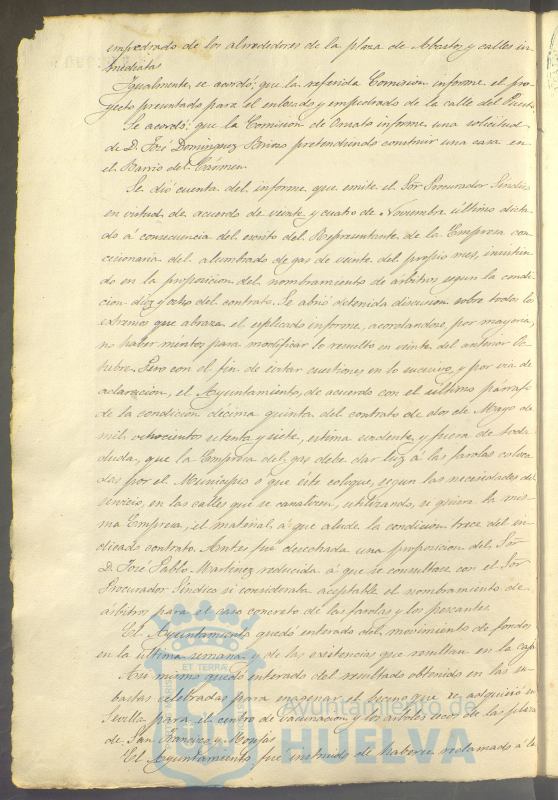 empedrado de los alrededores de la plaza de Abastos y calles in-
mediatas
Igualmente, se acordó: que la referida Comision informe el pro-
yecto presentado para el enlosado y empedrado de la calle del Puerto
Se acordó: que la Comision de Ornato informe una solicitud
de D. José Dominguez pretendiendo construir una casa en
el Barrio del Cármen
Se dió cuenta del informe que emite el Sor Procurador Síndico
en virtud de acuerdo de veinte y cuatro de Noviembre último dicta-
do á consecuencia del escrito del Representante de la Empresa con-
cesionaria del alumbrado de gas de veinte del propio mes, insistien-
do en la proposicion del nombramiento de árbitros segun la condi-
cion diez y ocho del contrato. Se abrió detenida discusion sobre todos los
extremos que abraza el esplicado informe, acordandose, por mayoria,
no haber meritos para modificar lo resuelto en veinte del anterior Oc-
tubre. Pero con el fin de evitar cuestiones en lo sucesivo, y por via de
aclaracion, el Ayuntamiento, de acuerdo con el último párrafo
de la condicion décima quinta del contrato de dos de Mayo de
mil ochocientos setenta y siete, estima evidente y fuera de toda
duda, que la Empresa del gas debe dar luz á las farolas coloca-
das por el Municipio ó que éste coloque, segun las necesidades del
servicio, en las calles que se canalicen, utilizando, si quiere la mis-
ma Empresa, el material á que alude la condicion trece del in-
dicado contrato. Antes fué desechada una proposicion del Sor
D. José Pablo Martinez reducida á que se consultase con el Sor
Procurador Síndico si consideraba aceptable el nombramiento de
árbitros para el caso concreto de las farolas y los pescantes
El Ayuntamiento quedó enterado del movimiento de fondos
en la última semana y de las existencias que resultan en la caja
Asi mismo quedó enterado del resultado obtenido en las su-
bastas celebradas para enagenar el que se adquirió en
Sevilla para el centro de vacunacion y los árboles secos de las plazas
de San Francisco y Monjas
El Ayuntamiento fué instruido de haberse reclamado á la
ET TERRÆ
Ayuntamiento de
HUELVA